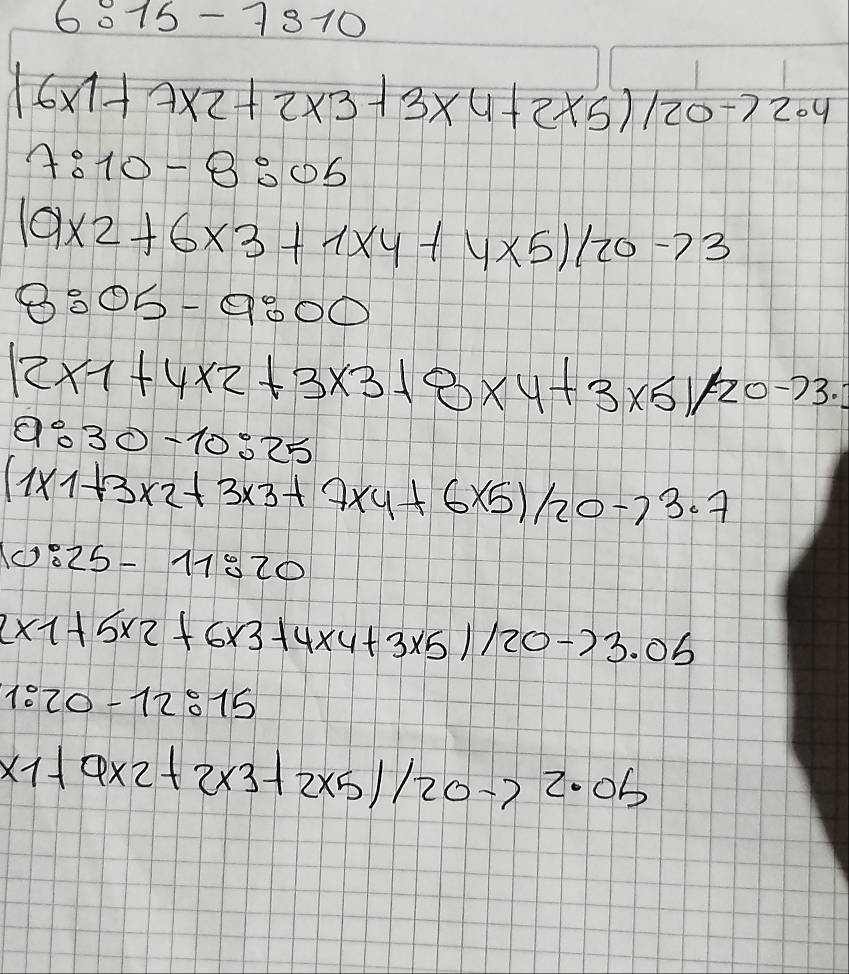 6:15 - 7:10
(6x1+7x2+2x3+3x4+2x5)/20->2.4
7:10 - 8:05
(9x2+6x3+1x4+4x5)/20->3
8:05 - 9:00
(2x1+4x2+3x3+8x4+3x5)/20->3.
9:30 - 10:25
(1x1+3x2+3x3+7x4+6x5)/20->3.7
10:25 - 11:20
2x1+5x2+6x3+4x4+3x5)/20->3.05
1:20 - 12:15
x1+9x2+2x3+2x5)/20->2.05